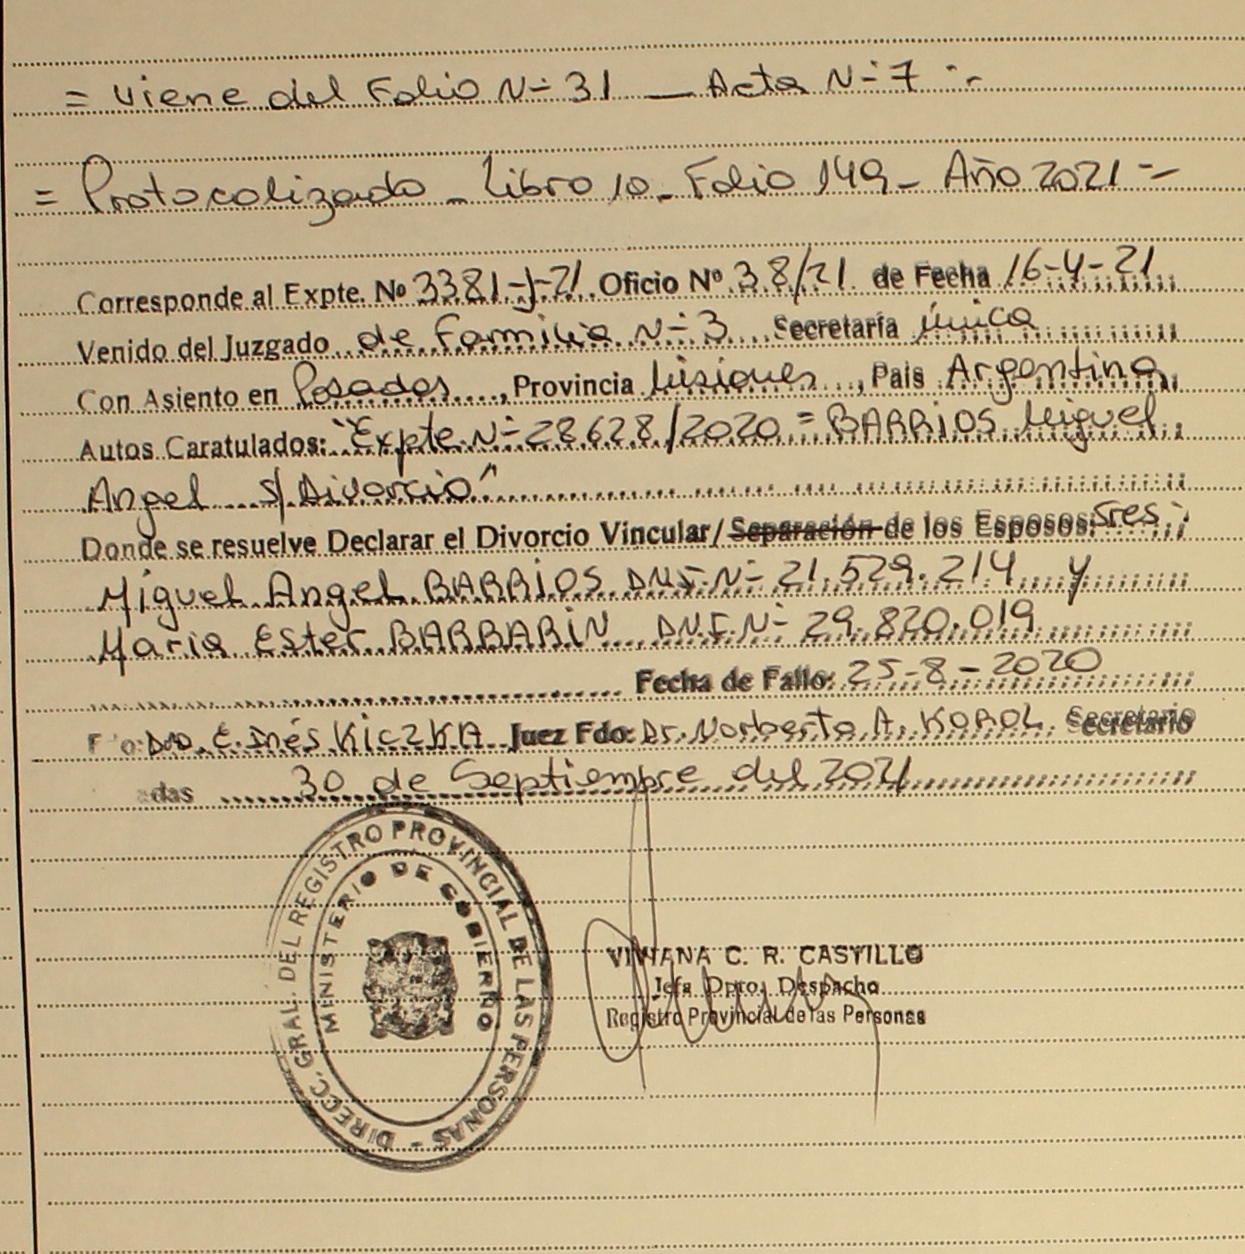 = Viene del Folio Nº 31 — Acta Nº 7 :-
= Protocolizado - Libro 10 - Folio 149 - Año 2021 =-
Corresponde al Expte. Nº 3381-J-21 Oficio Nº 38/21 de Fecha 16-4-21
Venido del Juzgado de Familia Nº 3 Secretaría única
Con Asiento en Posadas, Provincia Misiones, Pais Argentina
Autos Caratulados: "Expte. Nº 28628/2020 = BARRIOS Miguel
Angel s/Divorcio"
Donde se resuelve Declarar el Divorcio Vincular/Separación de los Esposos: Sres.
Miguel Angel BARRIOS DNI-Nº 21.529.214 y
Maria Ester BARBARIN DNI Nº 29.820.019
Fecha de Fallo: 25-8-2020
Dra. E. Inés KICZKA Juez Fdo: Dr. Norberto A. KOROL Secretario
adas 30 de Septiembre del 2021
DIRECC. GRAL. DEL REGISTRO PROVINCIAL DE LAS PERSONAS -
MINISTERIO DE GOBIERNO
VIVIANA C. R. CASTILLO
Jefa Dpto. Despacho
Registro Provincial de las Personas